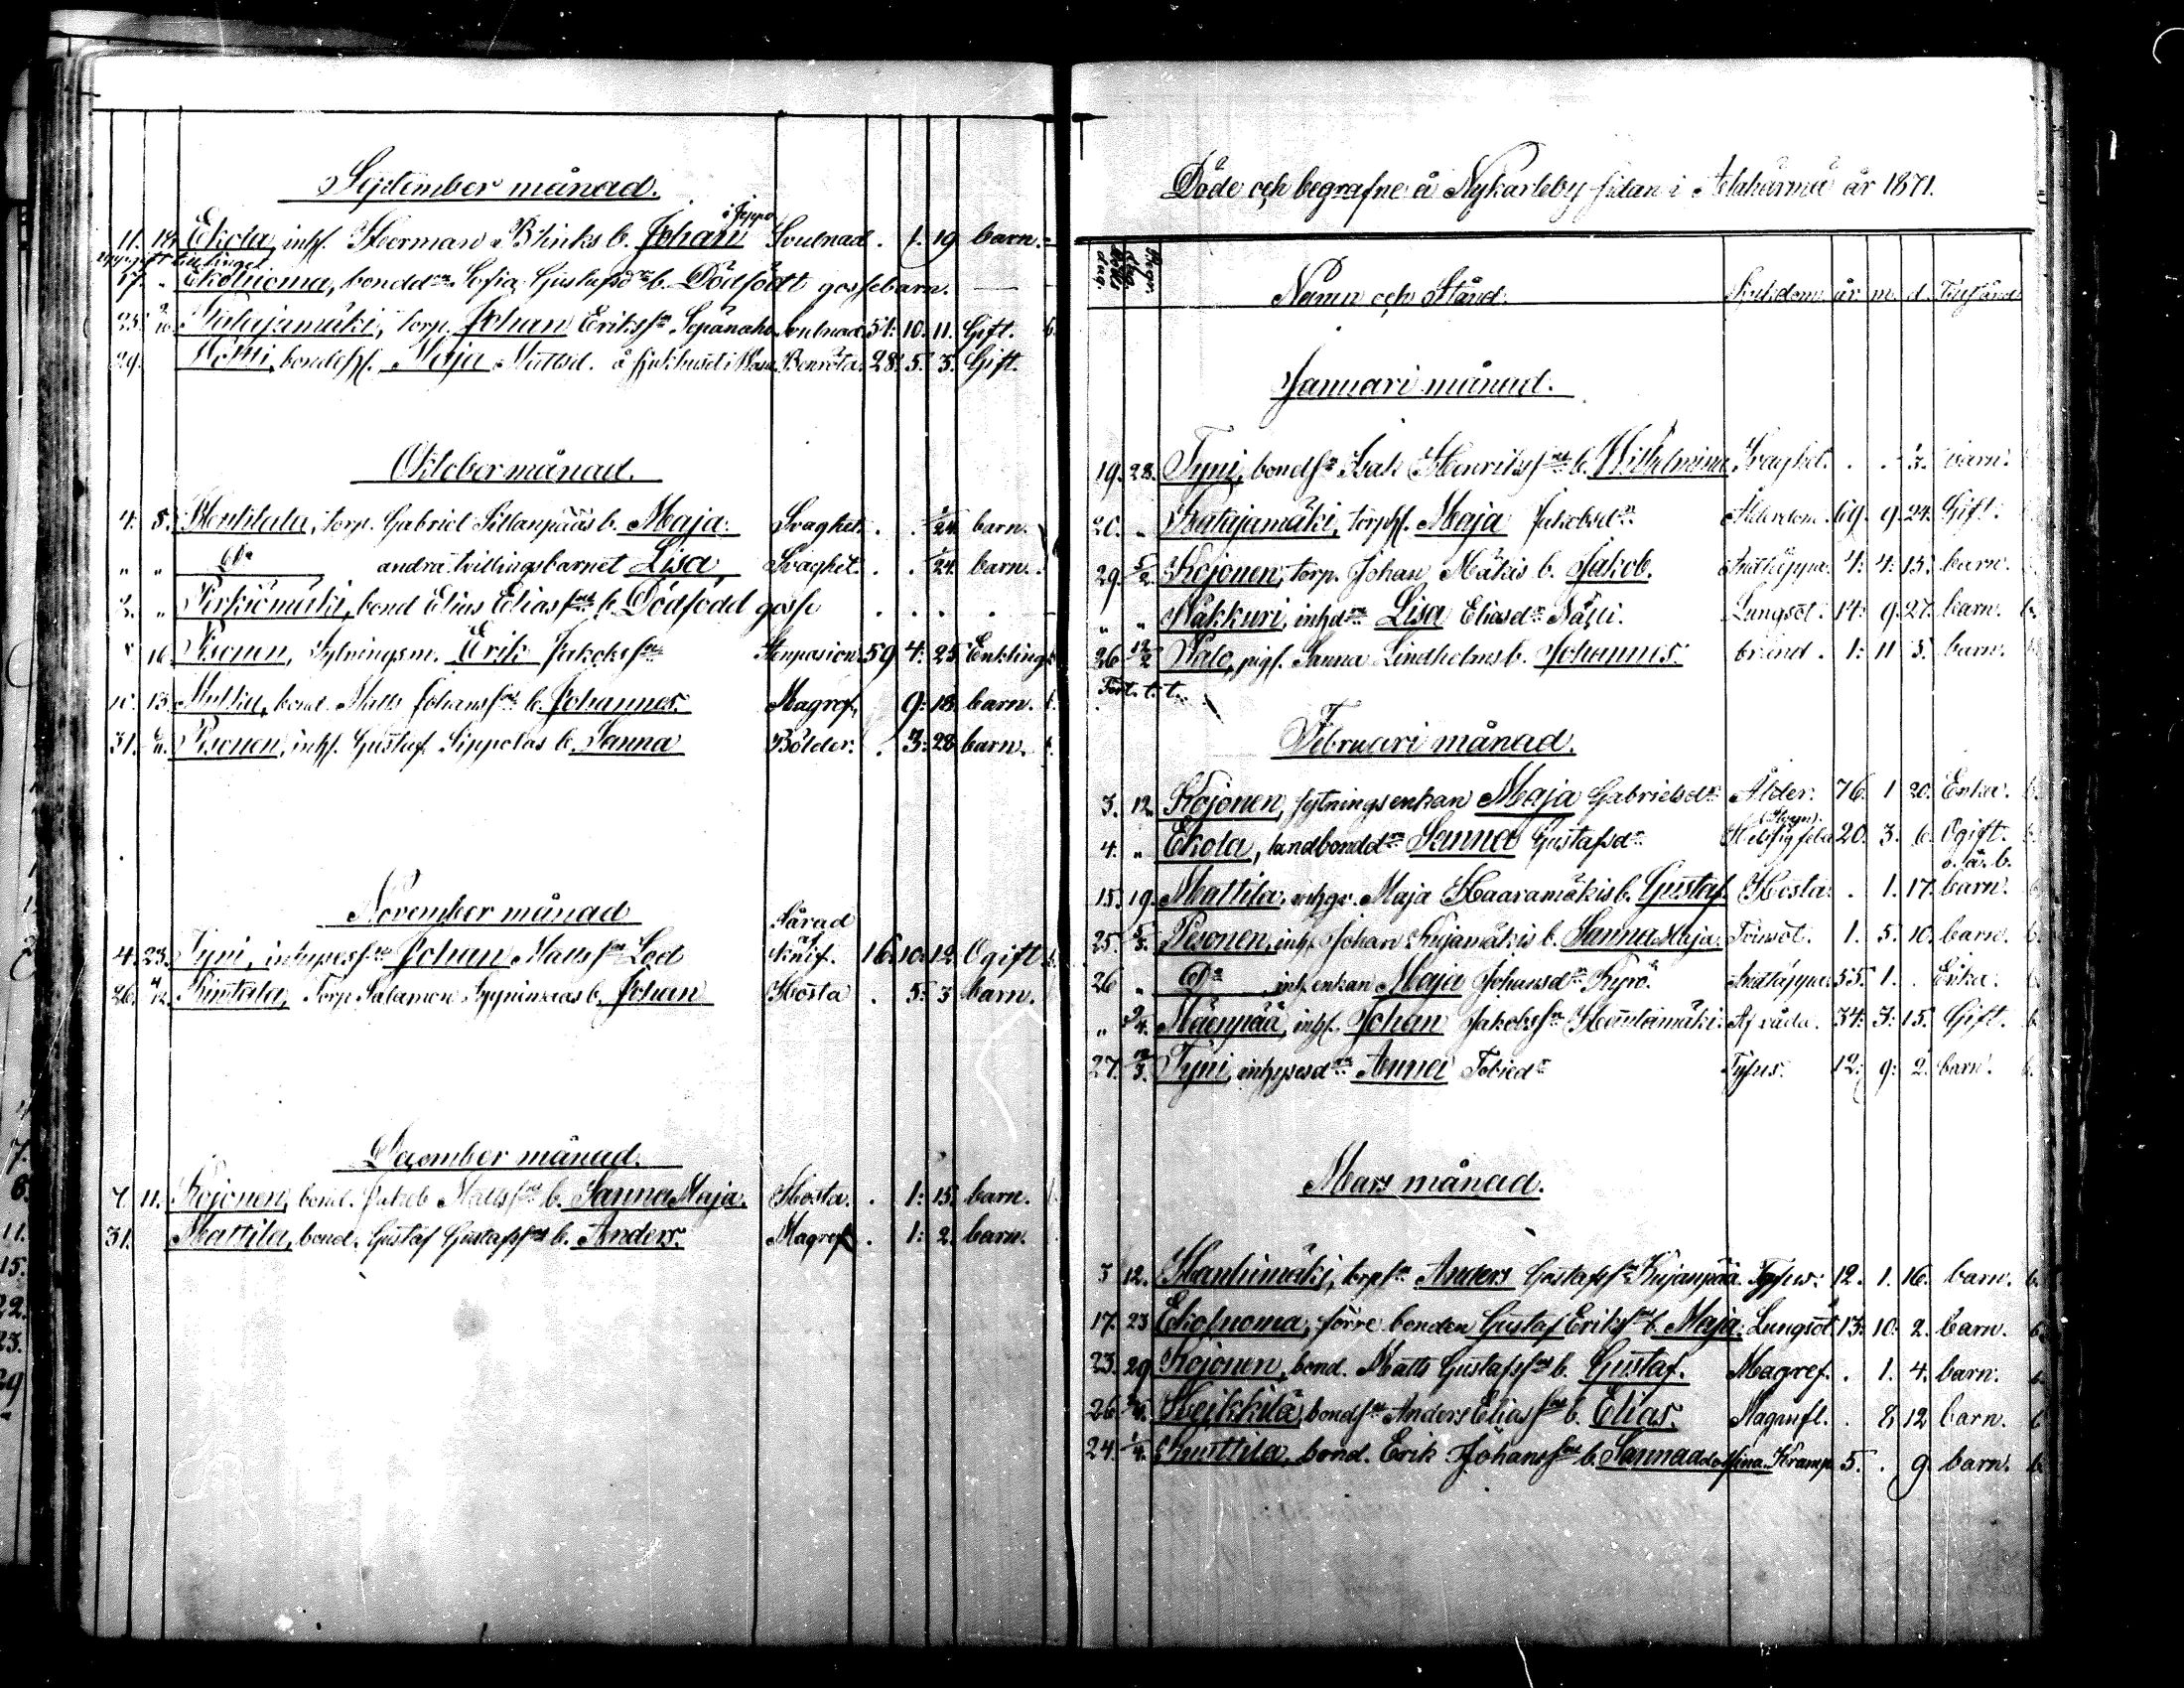 September månad.
i Jeppo
11. 18. Ekola, inhs. Herman Blinks b. Johan Svulnad. 1. 19 barn.
17. " Ekoluoma, bondd:rs Sofia Gustafsd:rs b. Dödfödt gossebarn.
25. Katajamäki, torp. Johan Eriks:sn svulnad. 51. 10. 11. Gift. b.
29. bondehs. Maja Mattsd. å sjukhuset i Wasa Benröta. 28. 5. 3. Gift.
Oktober månad.
4. 5. torp. Gabriel Sillanpääs b. Maja. Svaghet. . . 1/24 barn.
" " d:o andra tvillingsbarnet Lisa, Svaghet. . . 1/24. barn.
2. " bond Elias Elias s:ns b. Dödfödd gosse
Pesonen, Sytningsm. Erik Jakobs s:n 59 4. 25. Enkling
10. 13. bond. Matts Johans s:ns b. Johannes. Magref. 9. 18. barn. b.
31. Pesonen, inhs. Gustaf Sippolas b. Sanna Bölder. . 3. 28 barn. b.
November månad
Sårad
af
4. 23. Tyni, inhyses s:n Johan Matts s:n Lod Knif. 16. 10. 12. Ogift b.
26. 4/12. Torp. Salamon b. Johan Hosta . 5. 3 barn.
December månad.
7. 11. Kojonen, bond. Jakob Matts s:ns b. Sanna Maja. Hosta. . 1. 15. barn.
31. Mattila, bond. Gustaf Gustafs s:ns b. Anders. Magref. . 1. 2. barn.
Döde och begrafne å Nykarleby sidan i Alahärmä år 1871.
Döds dag Begr. dag Namn och Stånd. Sjukdom år m. d. Tillstånd
Januari månad.
19. 28. Tyni, bonds:n Isak Henriks s:ns b. Wilhelmina Svaghet. . . 3. barn.
20. " Katajamäki, torphs. Maja Jakobsd:r Ålderdom. 69. 9. 24. Gift.
29. 5/2. Kojonen, torp. Johan Mäkis b. Jakob. Andtäppa. 4. 4. 15. barn.
" " Näkkuri, inhd:rn Lisa Eliasd:r Nätti. Lungsot. 14. 9. 27. barn. b.
26 12/2 Palo, pigs. Sanna Lindholms b. Johannes. bränd. 1. 11 5. barn.
Februari månad.
3. 12. Kojonen, sytningsenkan Maja Gabrielsd:r Ålder. 76. 1 20. Enka. b.
4. " Ekola, landbondd:rn Sanna Gustafsd:r 20. 3. 6. Ogift. b.
o. ä. b.
15. 19. Mattila, inhgr. Maja Haaramäkis b. Gustaf. Hosta. . 1. 17. barn. b.
25. 5/3. Pesonen, inhs. Johan Kujamäkis b. Sanna Maja. Tvinsot. 1. 5. 10. barn. b.
26 " D:o inh. enkan Maja Johansd:r Kyrö Andtäppa 55. 1. . Enka. b.
" 9/4. Mäenpää, inhs. Johan Jakobs s:n Hanhimäki. Af våda. 34. 3. 15. Gift. b.
27. 12/3. Tyni, inhysesd:rn Anna Tobied:r Tyfus. 12. 9. 2. barn. b.
Mars månad.
3 12. Hanhimäki, torps:n Anders Gustafs s:n Kujanpää. Tyfus. 12. 1. 16. barn. b.
17. 23 Ekoluoma, förre bonden Gustaf Eriks s:ns b. Maja. Lungsot. 13. 10. 2. barn. b.
23. 29 Kojonen, bond. Matts Gustafs s:ns b. Gustaf. Magref. . 1. 4. barn. b.
26. Heikkilä, bonds:ns Anders Elias s:ns b. Elias. Maginfl. . 8. 12 barn. b
24. 1/4. Knuttila, bond. Erik Johans s:ns b. Sanna adolfina. Kramp 5. . 9. barn. b.